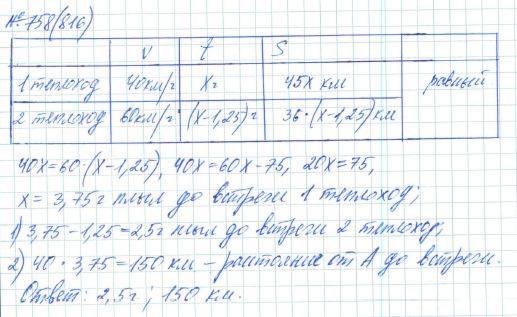 № 758(816)
V t S
1 теплоход 40км/г Xг 45X км равный
2 теплоход 60км/г (X-1,25)г 36·(X-1,25)км
40X=60·(X-1,25), 40X=60X-75, 20X=75,
X= 3,75г плыл до встречи 1 теплоход;
1) 3,75-1,25=2,5г плыл до встречи 2 теплоход;
2) 40·3,75=150 км – растояние от А до встречи.
Ответ: 2,5г; 150 км.